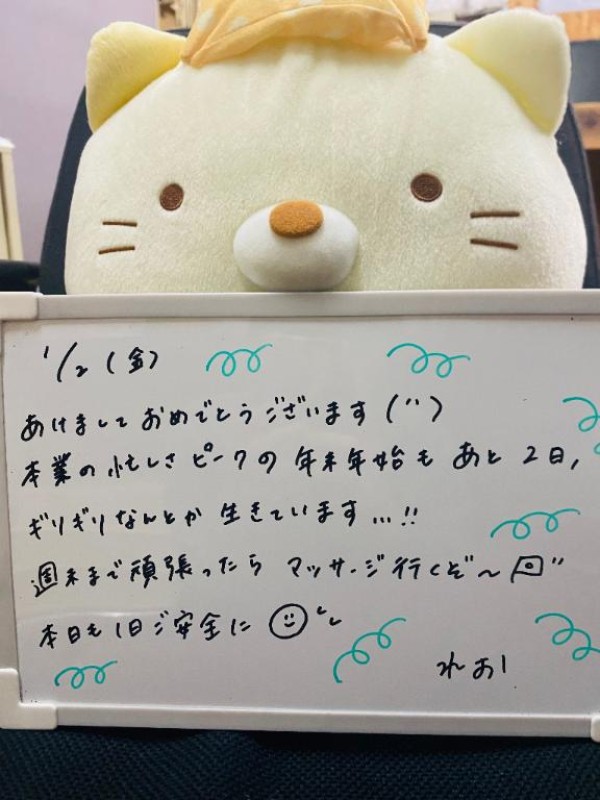 1/2 (金)
あけましておめでとうございます(¨)
本業の忙しさピークの年末年始もあと2日,
ギリギリなんとか生きています...!!
週末まで頑張ったらマッサージ行くぞ〜
本日も1日ご安全に
れお